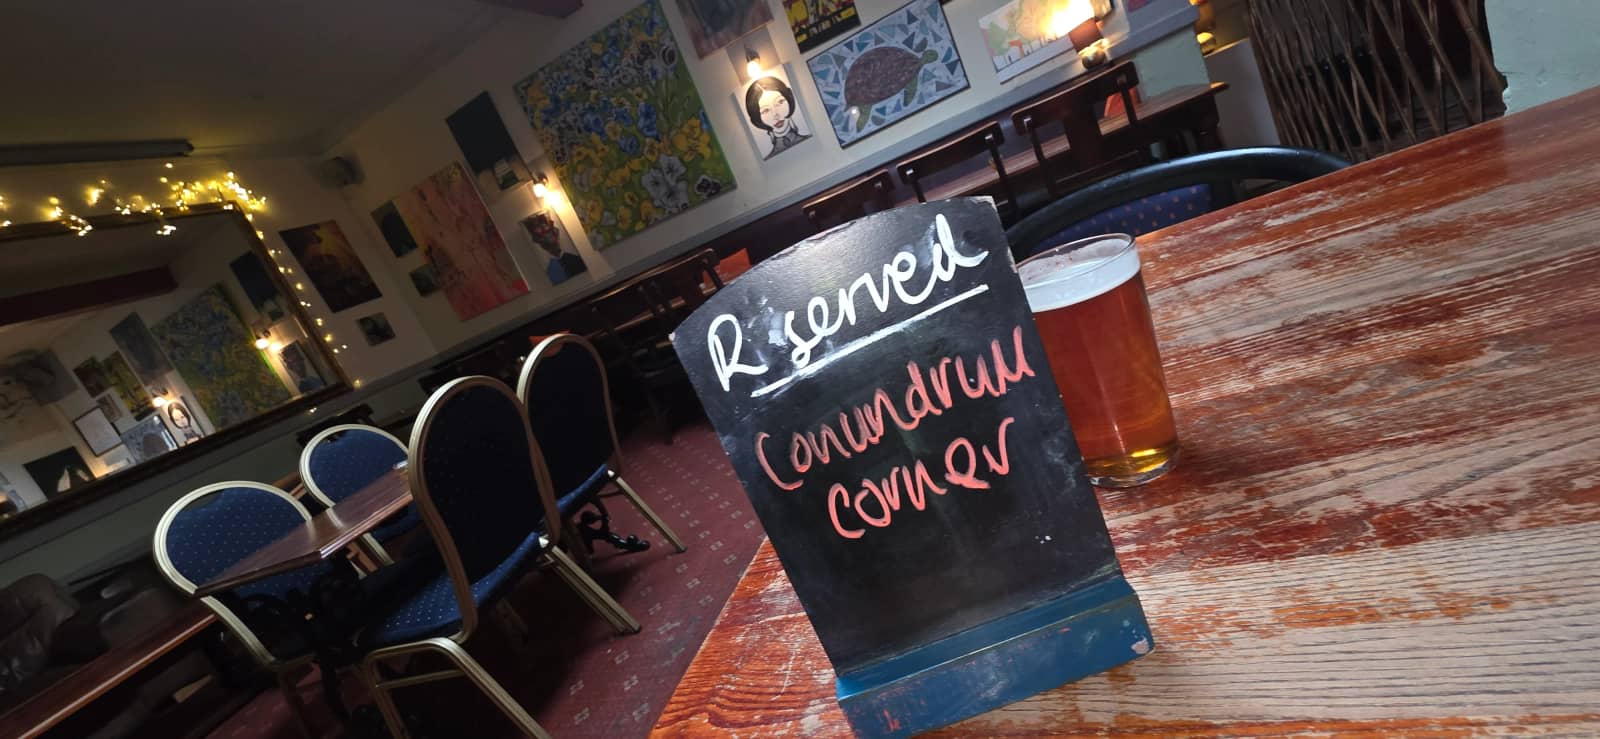 R served
Conundrum
Corner